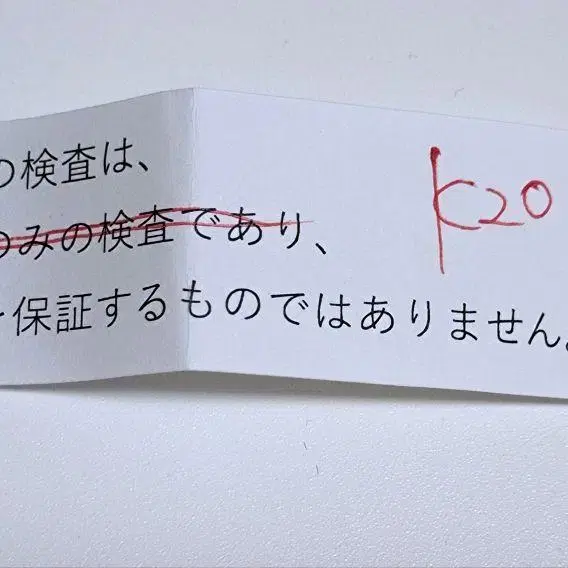 の検査は、
のみの検査であり、
を保証するものではありません。
K20